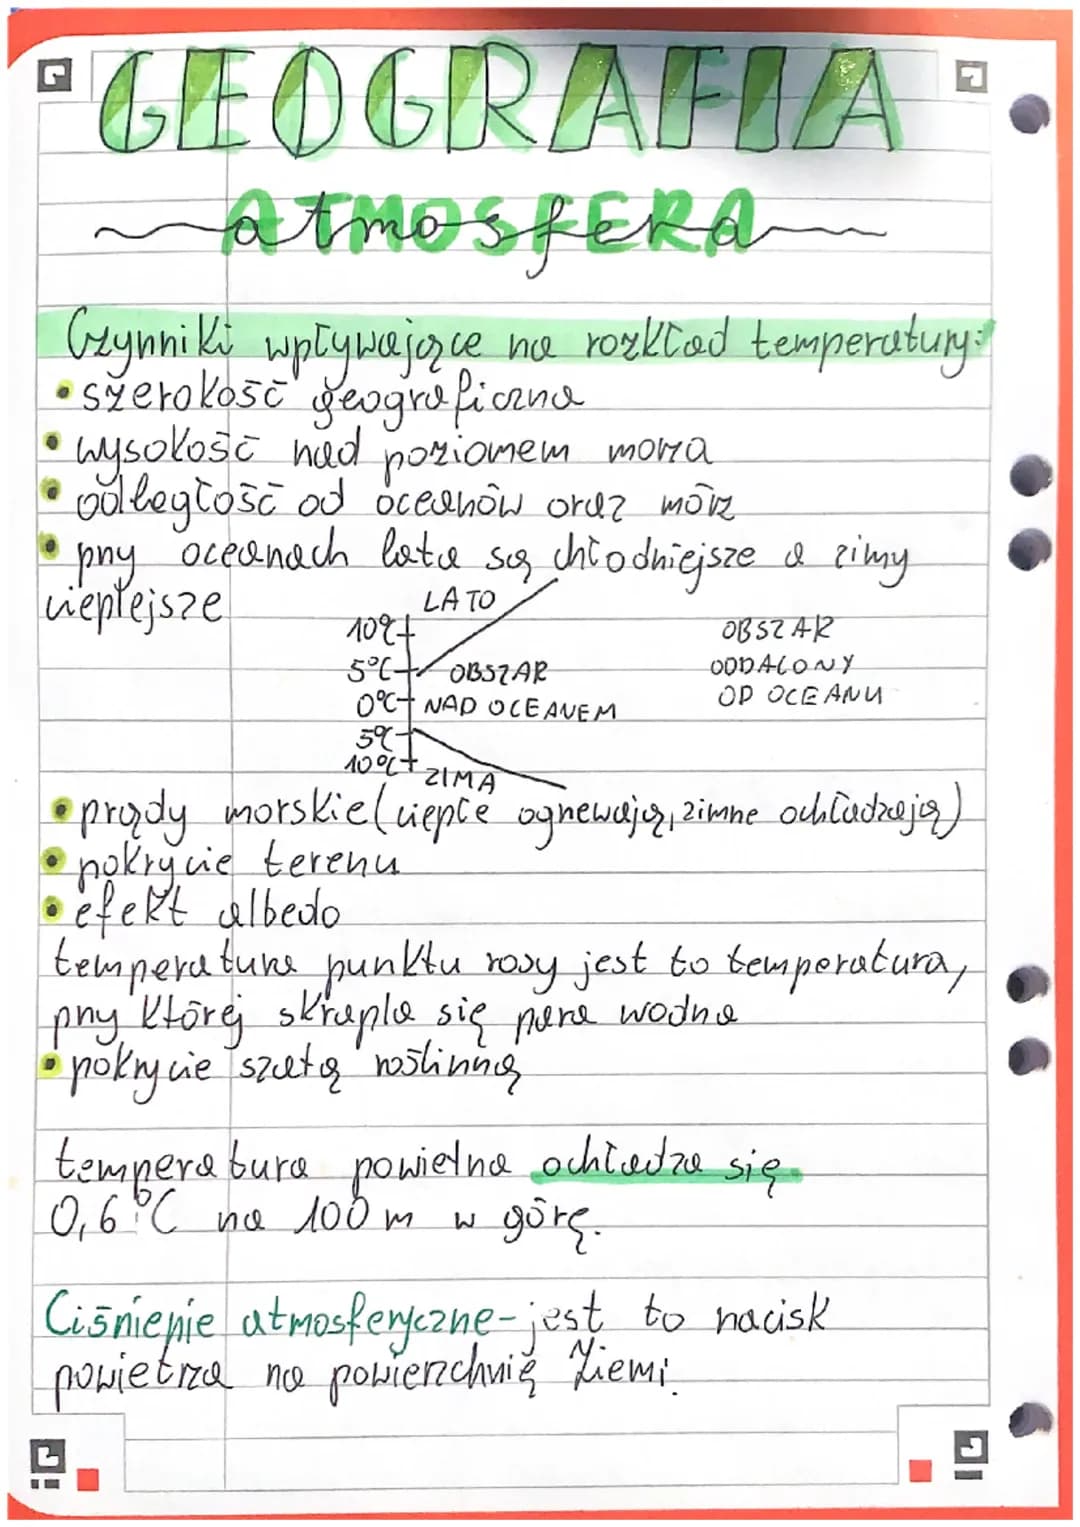 GEOGRAFIA
atmosfera
Czynniki wpływające na rozkład temperatury:
• szerokość geograficzna
• wysokość nad poziomem morza
• odległość od oceanów oraz mórz
• przy oceanach lata są chłodniejsze a zimy
cieplejsze
LATO
10°C
5°C
OBSZAR
0°C
NAD OCEANEM
5°C
10°C
ZIMA
OBSZAR
ODDALONY
OD OCEANU
• prądy morskie (ciepłe ogrzewają, zimne ochładzają)
• pokrycie terenu
• efekt albedo
temperatura punktu rosy jest to temperatura,
przy której skrapla się para wodna
• pokrycie szatą roślinną
temperatura powietrza ochładza się
0,6°C na 100 m w górę.
Ciśnienie atmosferyczne - jest to nacisk
powietrza na powierzchnię Ziemi.